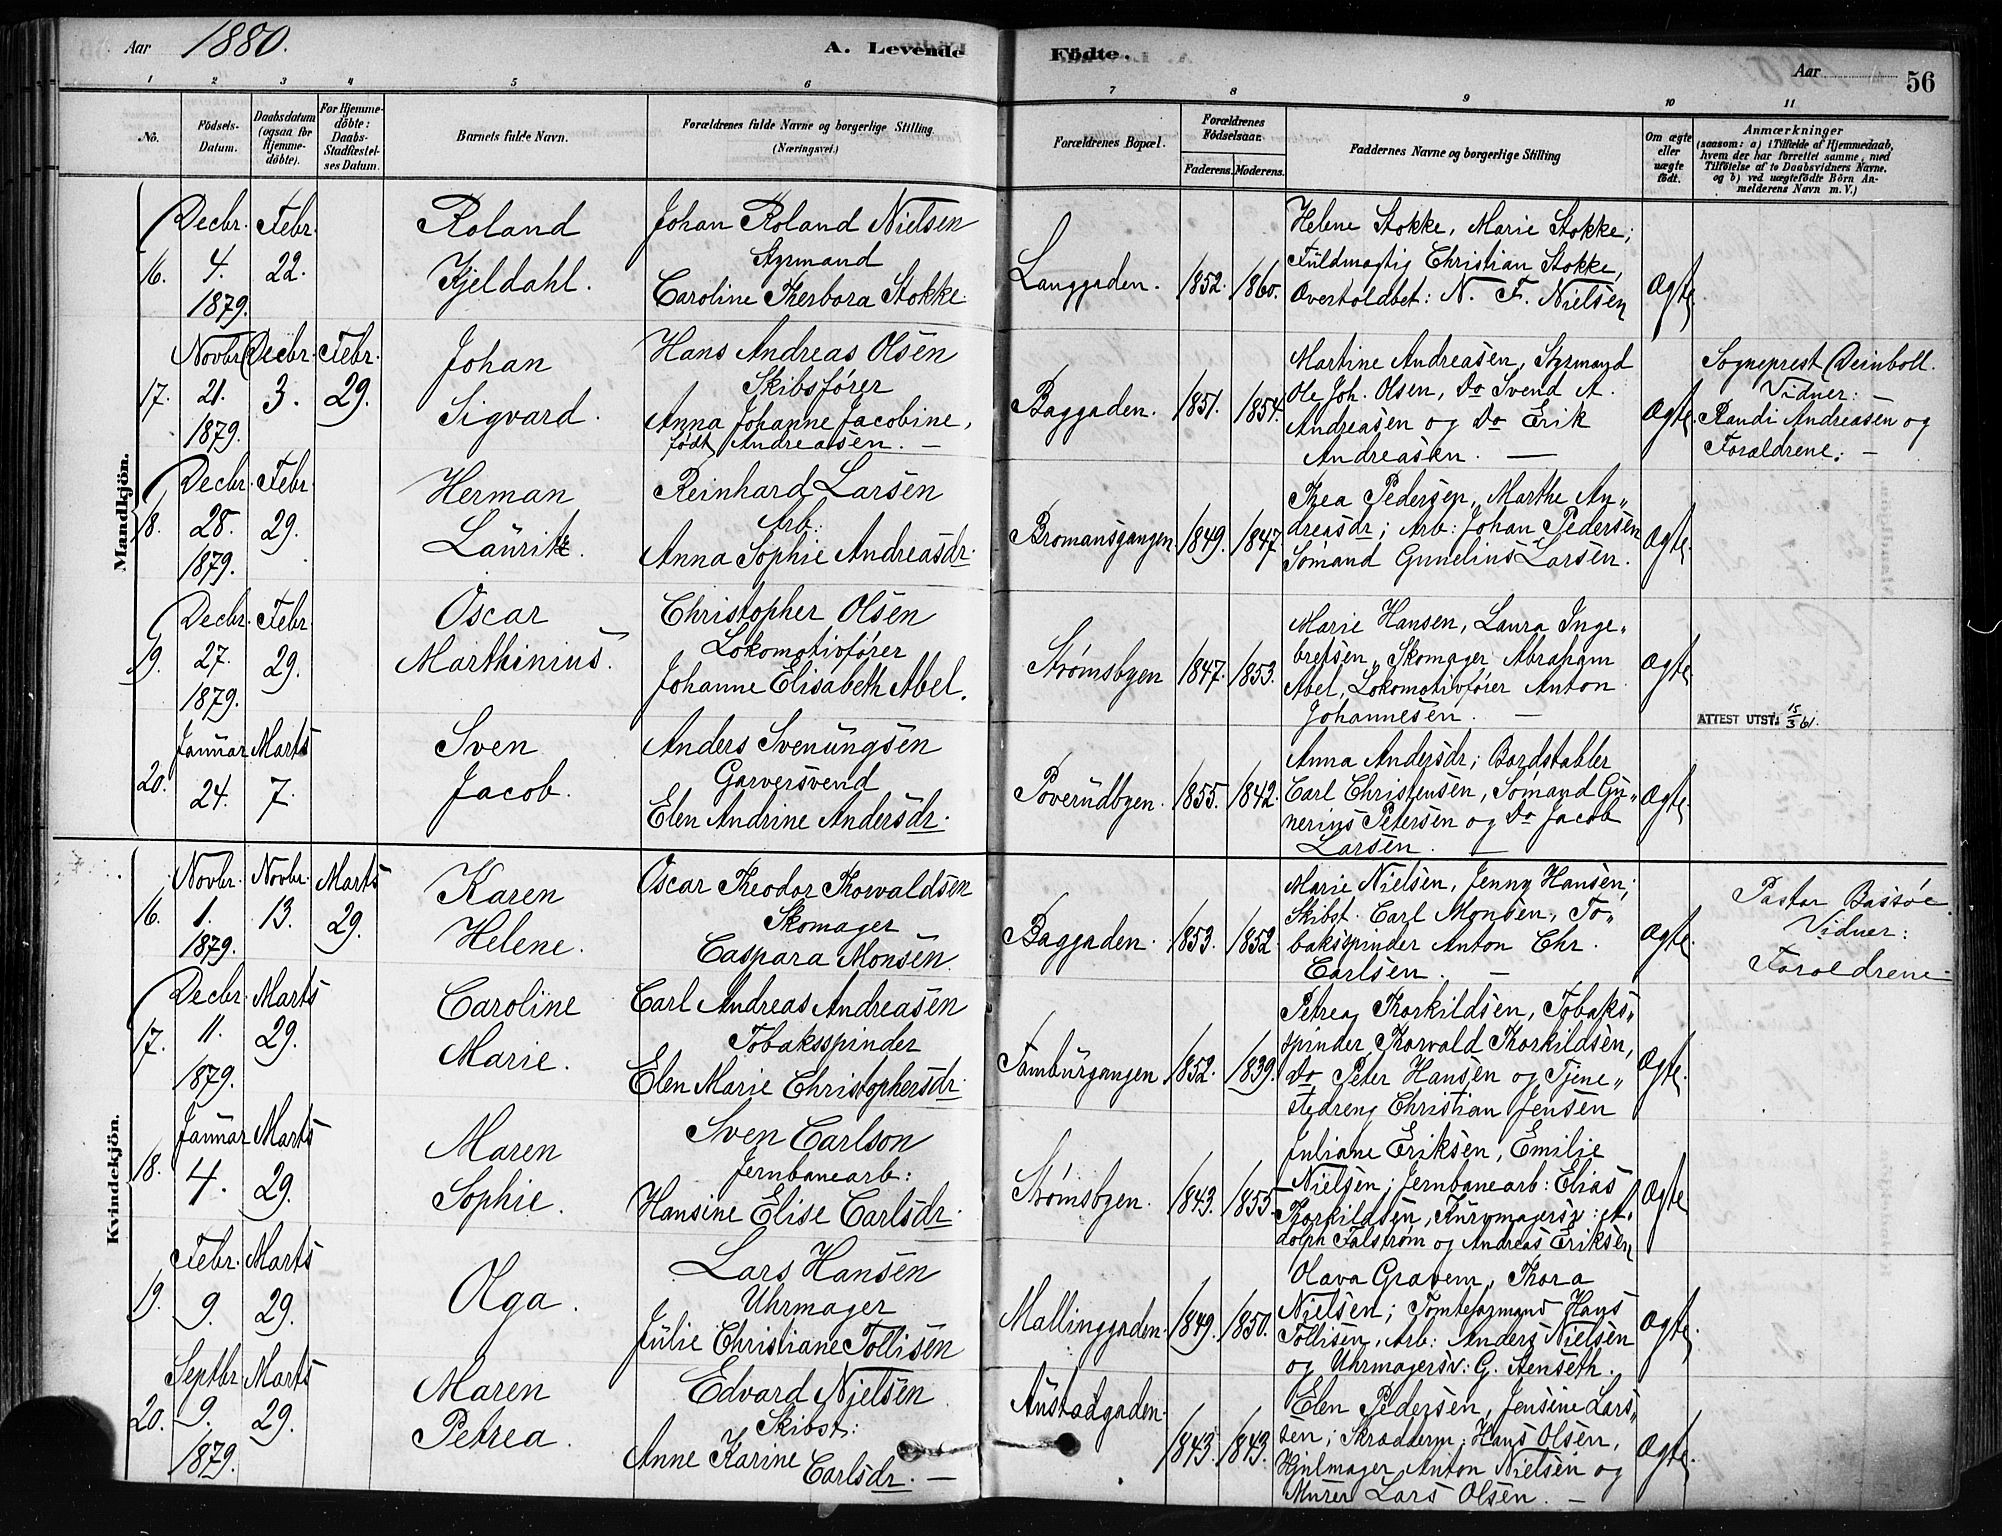 Aar 1880. A. Levende Födte. Aar 56
1 2 3 4 5 6 7 8 9 10 11
No.
Födsels-Datum.
Daabsdatum (ogsaa for Hjemme-döbte).
For Hjemme-döbte: Daabs-Stadfæstel-ses Datum.
Barnets fulde Navn.
Forældrenes fulde Navne og borgerlige Stilling
(Næringsvei.)
Forældrenes Bopæl.
Forældrenes Födselsaar.
Faderens. Moderens.
Faddernes Navne og borgerlige Stilling
Om ægte eller uægte födt.
Anmærkninger
(saasom: a) i Tilfælde af Hjemmedaab,
hvem der har forrettet samme, med
Tilföielse af to Daabsvidners Navne.
og b) ved uægtefödte Börn An-
melderens Navn m. V.)
Mandkjön.
16. Decbr. 4. 1879. Febr. 22.
Roland
Kjeldahl.
Johan Roland Nielsen
Styrmand
Caroline Therbora Stokke
Langgaden. 1852. 1860.
Helene Stokke, Marie Stokke;
Fuldmægtig Christian Stokke,
Overtoldbet: N. F. Nielsen
Ægte
17. Novbr. 21. 1879. Decbr. 3. Febr. 29.
Johan
Sigvard.
Hans Andreas Olsen
Skibsfører
Anna Johanne Jacobine,
født Andreasen. —
Baggaden. 1851. 1854.
Martine Andreasen, Styrmand
Ole Joh. Olsen, Do Svend A.
Andreasen og Do Erik
Andreasen. —
Ægte.
Sogneprest Deinboll.
Vidner:
Randi Andreasen og
Forældrene. —
18. Decbr. 28. 1879. Febr. 29.
Herman
Lauritz.
Reinhard Larsen
Arb:
Anna Sophie Andreasdr.
Bromansgangen 1849. 1847
Thea Pedersen, Marthe An„
dreasdr; Arb: Johan Pedersen
Sømand Gunelius Larsen.
Ægte.
19. Decbr. 27. 1879. Febr. 29.
Oscar
Marthinius.
Christopher Olsen
Lokomotivfører
Johanne Elisabeth Abel.
Strømsbyen 1847. 1853.
Marie Hansen, Laura Inge„
bretsen, Skomager Abraham
Abel, Lokomotivfører Anton
Johannesen. —
Ægte
ATTEST UTST. 15/3 61.
20. Januar 24. Marts 7.
Sven
Jacob.
Anders Svenungsen
Garversvend
Elen Andrine Andersdr.
Poverudbyen. 1855. 1842.
Anna Andersdr; Bordstabler
Carl Christensen, Sømand Gu„
nerius Petersen og Do Jacob
Larsen. —
Ægte.
Kvindekjön.
16. Novbr. 1. 1879. Novbr. 13. Marts 29.
Karen
Helene.
Oscar Theodor Thorvaldsen
Skomager
Caspara Monsen.
Baggaden. 1853. 1852.
Marie Nielsen, Jenny Hansen;
Skibst. Carl Monsen, To„
baksspinder Anton Chr.
Carlsen. —
Ægte.
Pastor Bassøe.
Vidner:
Forældrene.
17. Decbr. 11. 1879. Marts 29.
Caroline
Marie.
Carl Andreas Andreasen
Tobaksspinder
Elen Marie Christophersdr.
Tamburgangen 1852. 1839.
Petrea Thorkildsen, Tobaks„
spinder Thorvald Thorkildsen,
Do Peter Hansen og Tjene„
stedreng Christian Jensen
Ægte.
18. Januar 4. Marts 29.
Maren
Sophie.
Sven Carlson
Jernbanearb:
Hansine Elise Carlsdr.
Strømsbyen. 1843. 1855.
Juliane Eriksen, Emilie
Nielsen; Jernbanearb: Elias
Thorkildsen, Kurvmagersv: A„
dolph Falstrøm og Andreas Eriksen
Ægte
19. Febr. 9. Marts 29.
Olga.
Lars Hansen
Uhrmager
Julie Christiane Tollisen
Mallinggaden. 1849. 1850.
Olava Gravem, Thora
Nielsen; Tomteformand Hans
Tollisen, Arb: Anders Nielsen
og Uhrmagersv: G. Aenseth.
Ægte.
20. Septbr. 9. 1879. Marts 29.
Maren
Petrea.
Edvard Nielsen
Skibst:
Anne Karine
Carlsdr. —
Austadgaden. 1843. 1843.
Elen Pedersen, Jensine Lars„
sen; Skrædderm: Hans Olsen,
Hjulmager Anton Nielsen og
Murer Lars Olsen. —
Ægte.